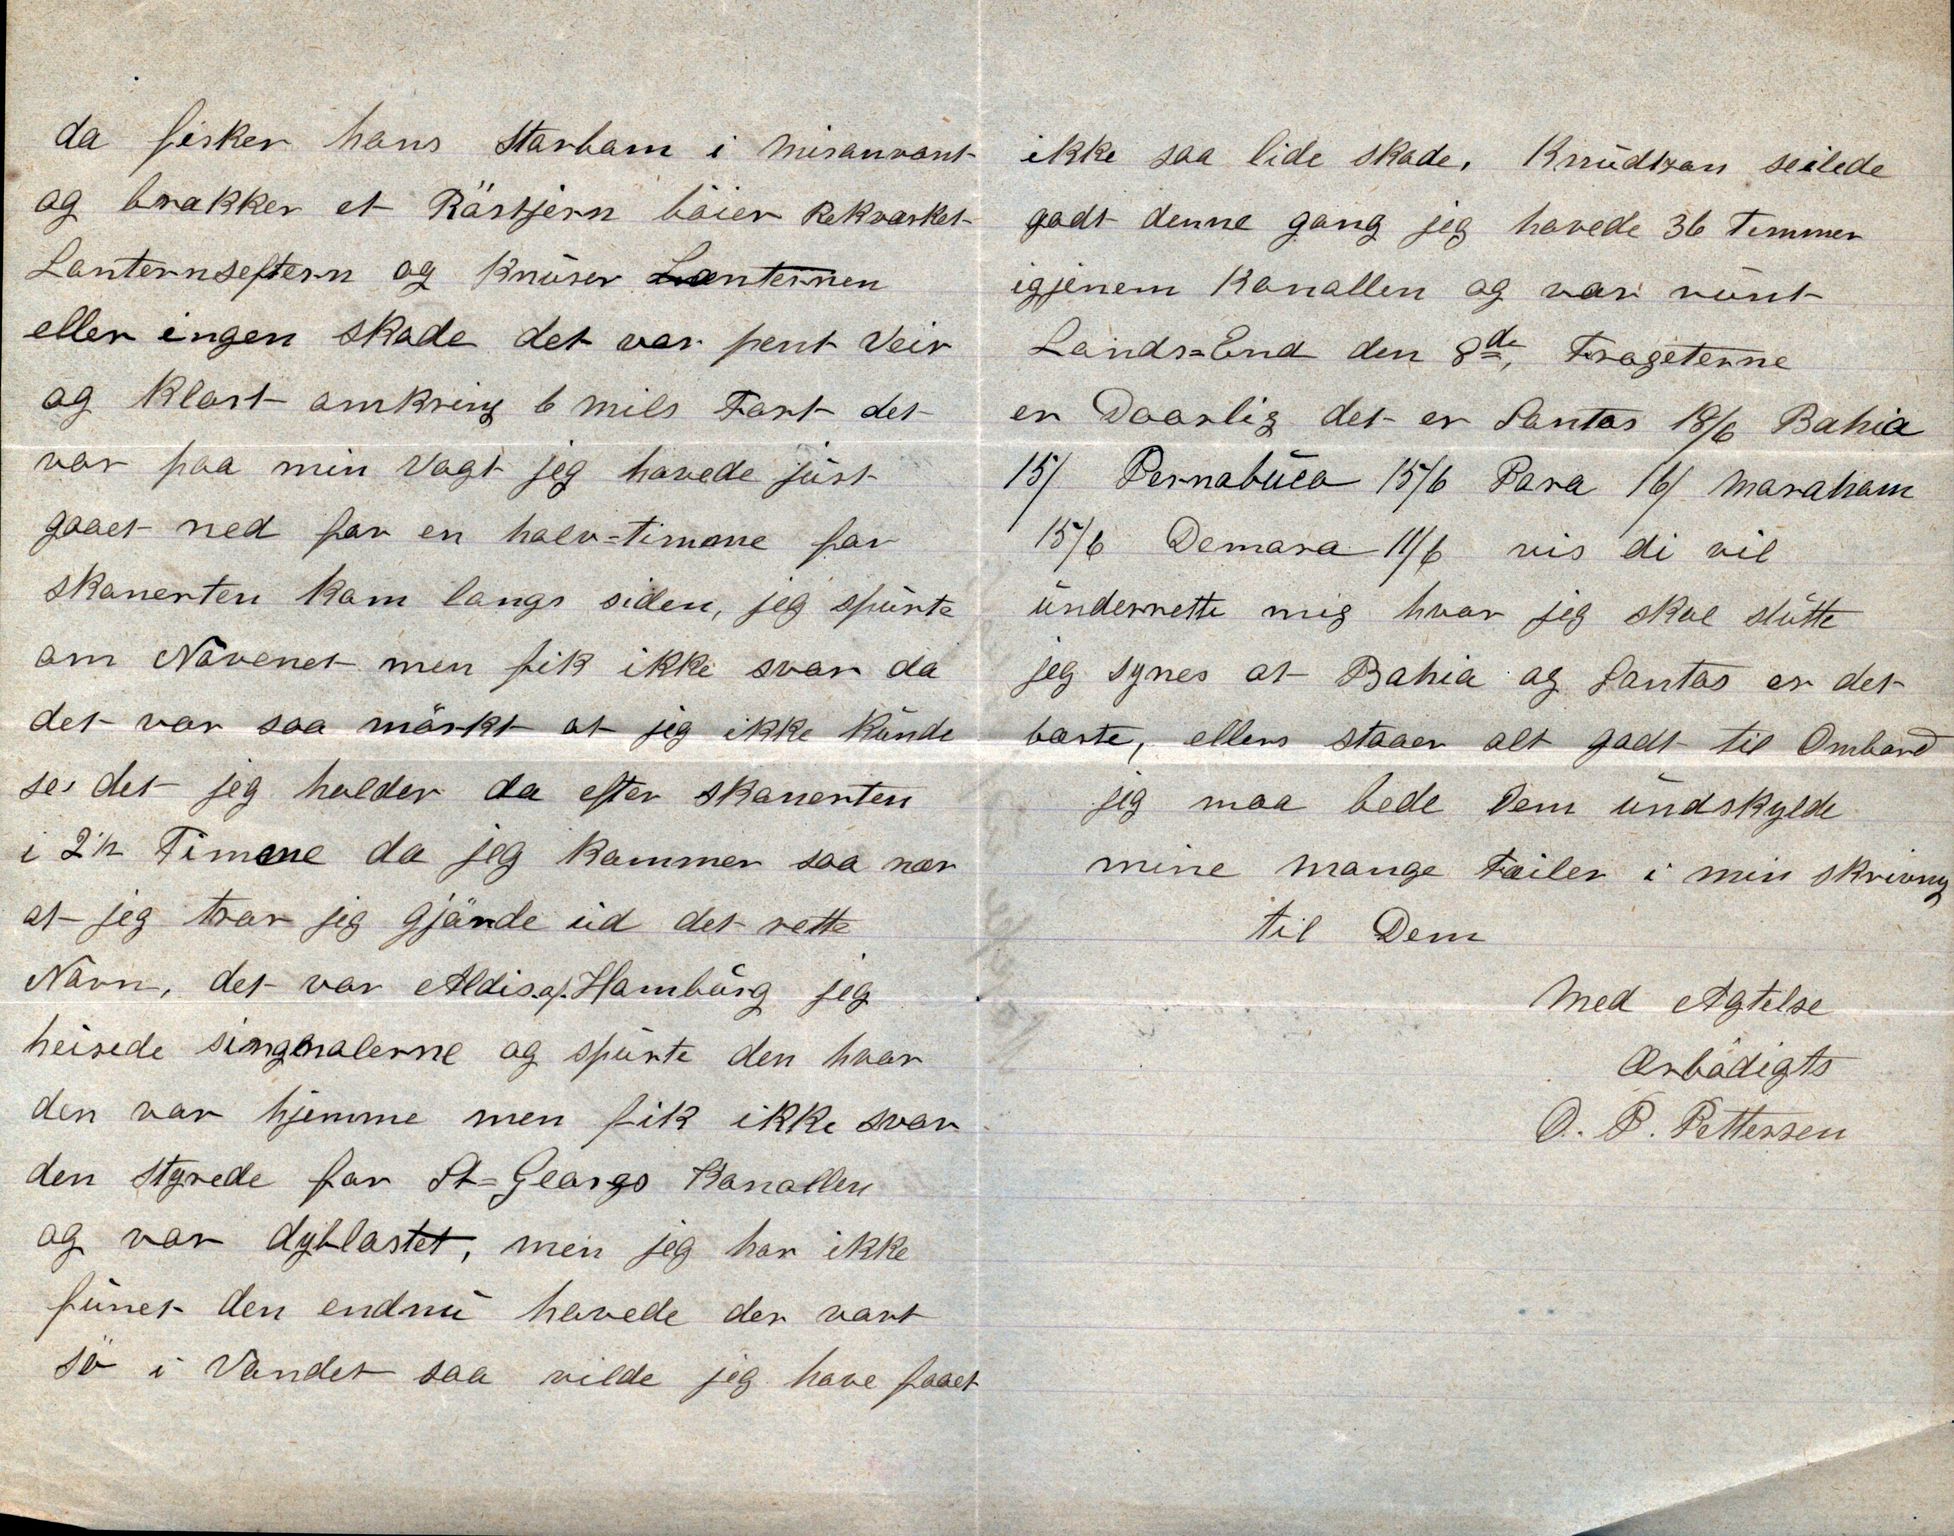 da fisker hans starbom i misanvant
og brækker et Röstjern böier Rekværket
Lanternseftern og Knuser Lanternen
eller ingen skade det var pent Veir
og klart omkring 6 mils Fart det
var paa min Vagt jeg havede just
gaaet ned for en halv=timme for
skonerten kom langs siden, jeg spurte
om Navenet men fik ikke svar da
det var saa mörkt at jeg ikke kunde
se det jeg holder da efter skonerten
i 2 1/2 Timme da jeg kommer saa nær
at jeg tror jeg gjörde ud det rette
Navn, det var Aldis. af. Hamburg jeg
heisede singnalerne og spurte den hvor
den var hjemme men fik ikke svar
den styrede for St=Georgs Kanallen
og var dyblastet, men jeg har ikke
funet den endnu havede der vært
sö i Vandet saa vilde jeg have faaet
ikke saa lide skade. Knudtzon seilede
godt denne gang jeg havede 36 Timmer
igjenem Kanallen og var runt
Lands=End den 8de, Frageterne
er Daarlig det er Santos 18/6 Bahia
15/ Pernabuco 15/6 Para 16/ Maraham
15/6 Demara 11/6 vis di vil
underrette mig hvor jeg skal slutte
jeg synes at Bahia og Santos er det
bærte, ellers staaer alt godt til Ombord
jeg maa bede Dem undskylde
mine mange Fæiler i min skriving
til Dem
Med Agtelse
Ærbödigts
O. P. Pettersen